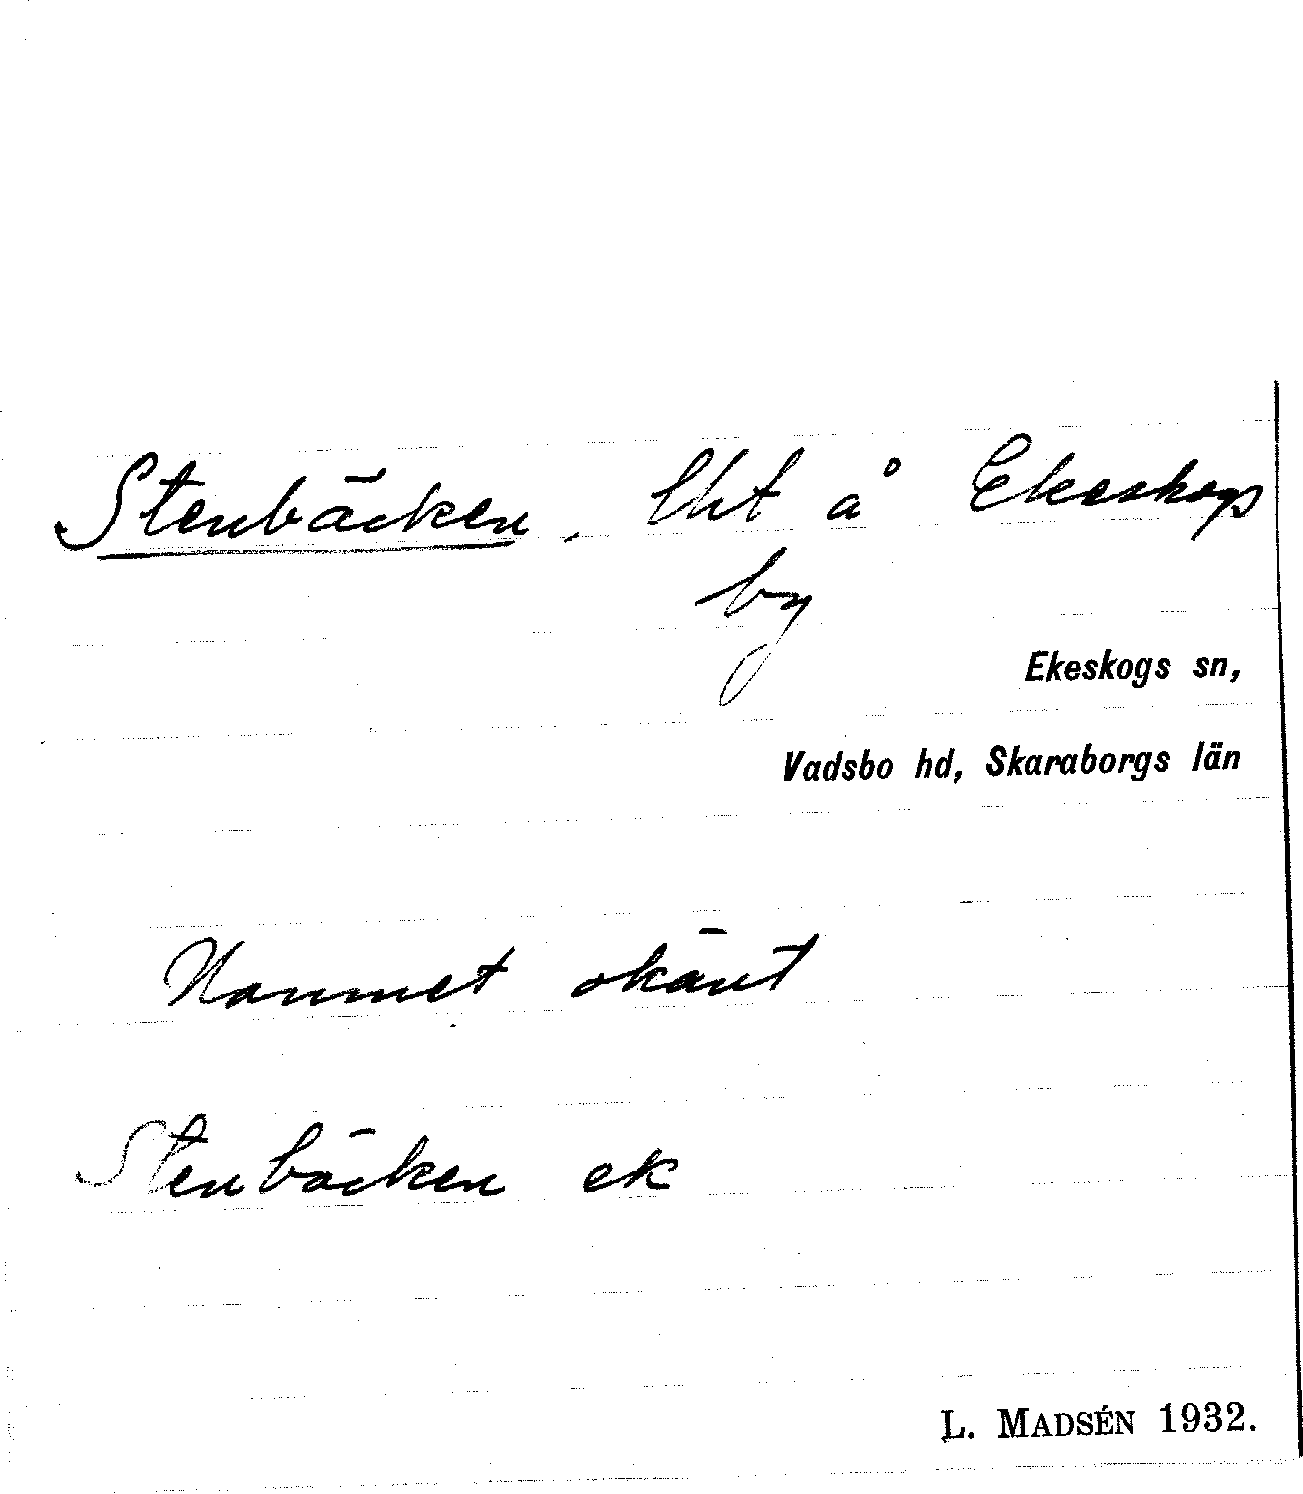 Stenbäcken, lht å Ekeskogs
by
Ekeskogs sn,
Vadsbo hd, Skaraborgs län
Namnet okänt
Stenbäcken ek
L. MADSÉN 1932.